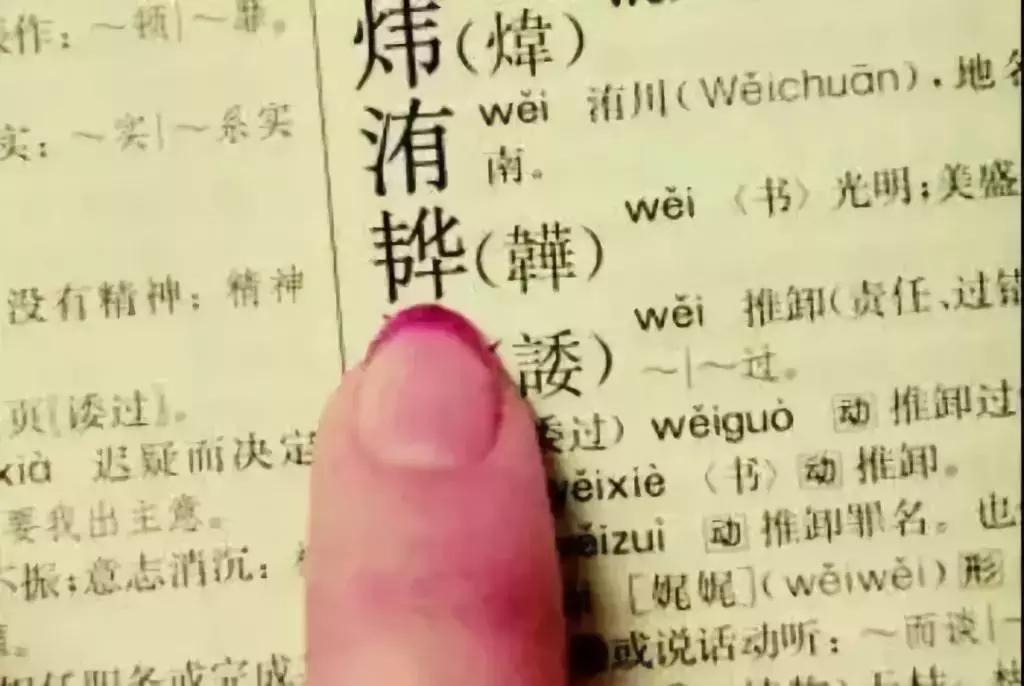 作：～顿|～靡。
实：～实|～系实
没有精神；精神
页〖诿过〗。
xià 迟疑而决定
要我出主意。
不振；意志消沉：
炜(煒)
洧 wěi 洧川(Wěichuān)，地名
南。
韡(韡) wěi 〈书〉光明；美盛
(諉) wěi 推卸(责任、过错
～|～过。
委过) wěiguò 动 推卸过
wěixiè 〈书〉动 推卸。
wěizuì 动 推卸罪名。也
[娓娓](wěiwěi) 形
或说话动听：～而谈|～